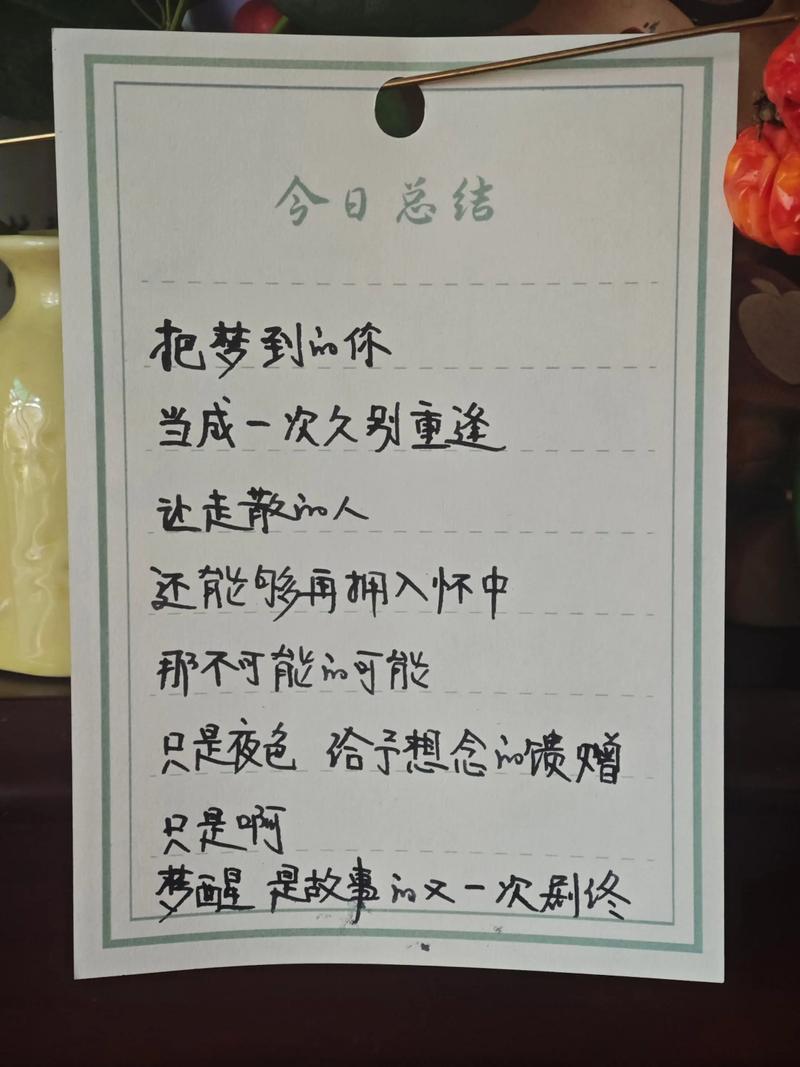 今日总结
把梦到的你
当成一次久别重逢
让走散的人
还能够再拥入怀中
那不可能的可能
只是夜色 给予想念的馈赠
只是啊
梦醒 是故事的又一次剧终